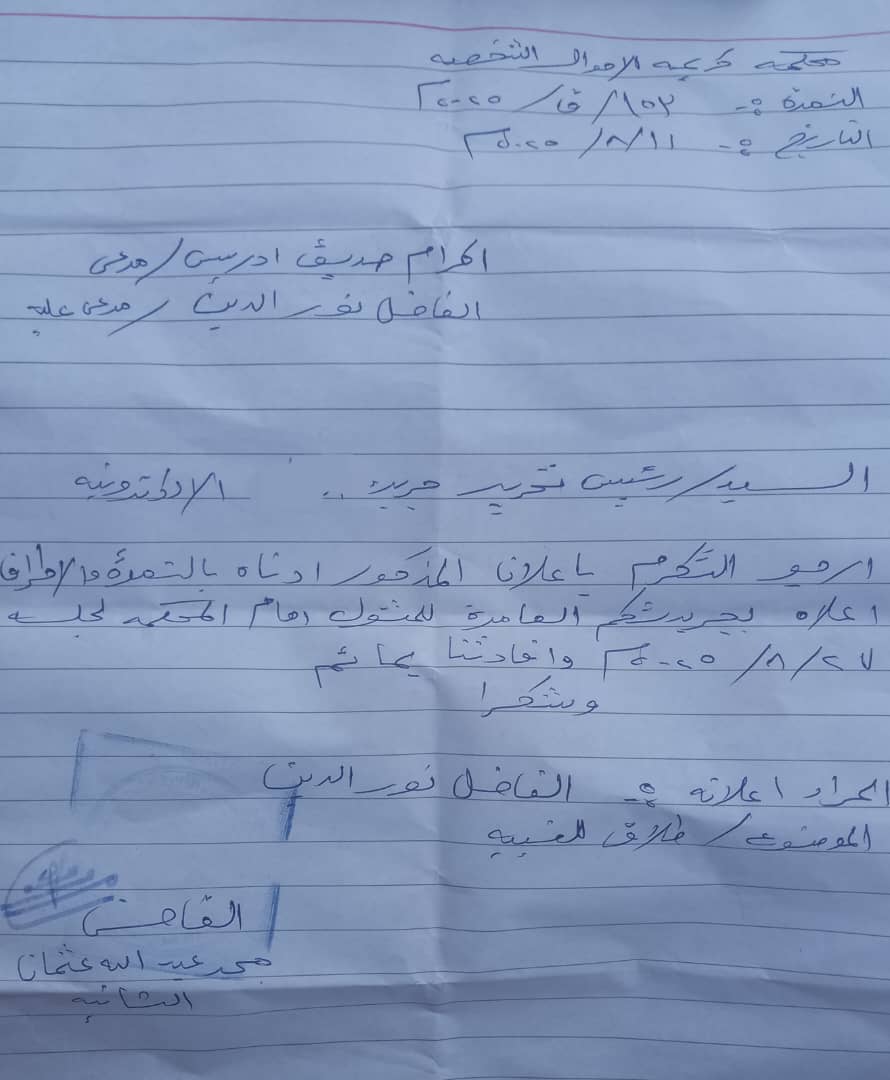 محكمة كريمه الاحوال الشخصيه
النمرة :- ١٥٣/ق/٢٠٢٥م
التاريخ :- ١١/٨/٢٠٢٥م
اكرام صديق ادريس/مدعى
الفاضل نور الدين /مدعى عليه
السيد/رئيس تحرير جريدة .. الالكترونيه
ارجو التكرم باعلان المذكور ادناه بالنمرة والاطراف
اعلاه بجريدتكم العامرة للمثول امام المحكمه لجلسه
٢٧/٨/٢٠٢٥م وافادتنا بما تم
وشكرا
المراد اعلانه :- الفاضل نور الدين
الموضوع/طلاق للغيبه
القاضى
محمد عبد الله عثمان
الثانيه